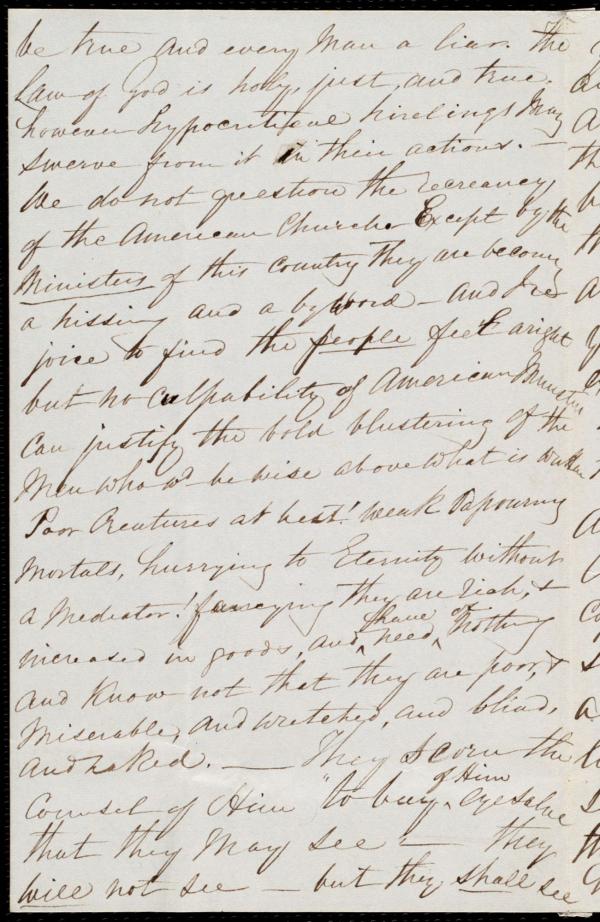 be true and every Man a liar. The
Law of God is holy, just, and true.
however hypocritical hirelings May
swerve from it in their actions. —
We do not question the recreancy
of the American Churches Except by the
Ministers of this country They are becoming
a hissing and a by word — and I re
joice to find the people feel aright
but no culpability of American Minister
can justify the bold blustering of the
Men who wd be wise above what is written
Poor Creatures at best! weak vapouring
Mortals, hurrying to Eternity without
a Mediator! fancying they are rich, &
increased in goods, and have need of nothing
and know not that they are poor, &
Miserable, and wretched, and blind,
and naked. — They scorn the
Counsel of Him "to buy of Him eyesalve
that they May see — they
will not see — but they shall see